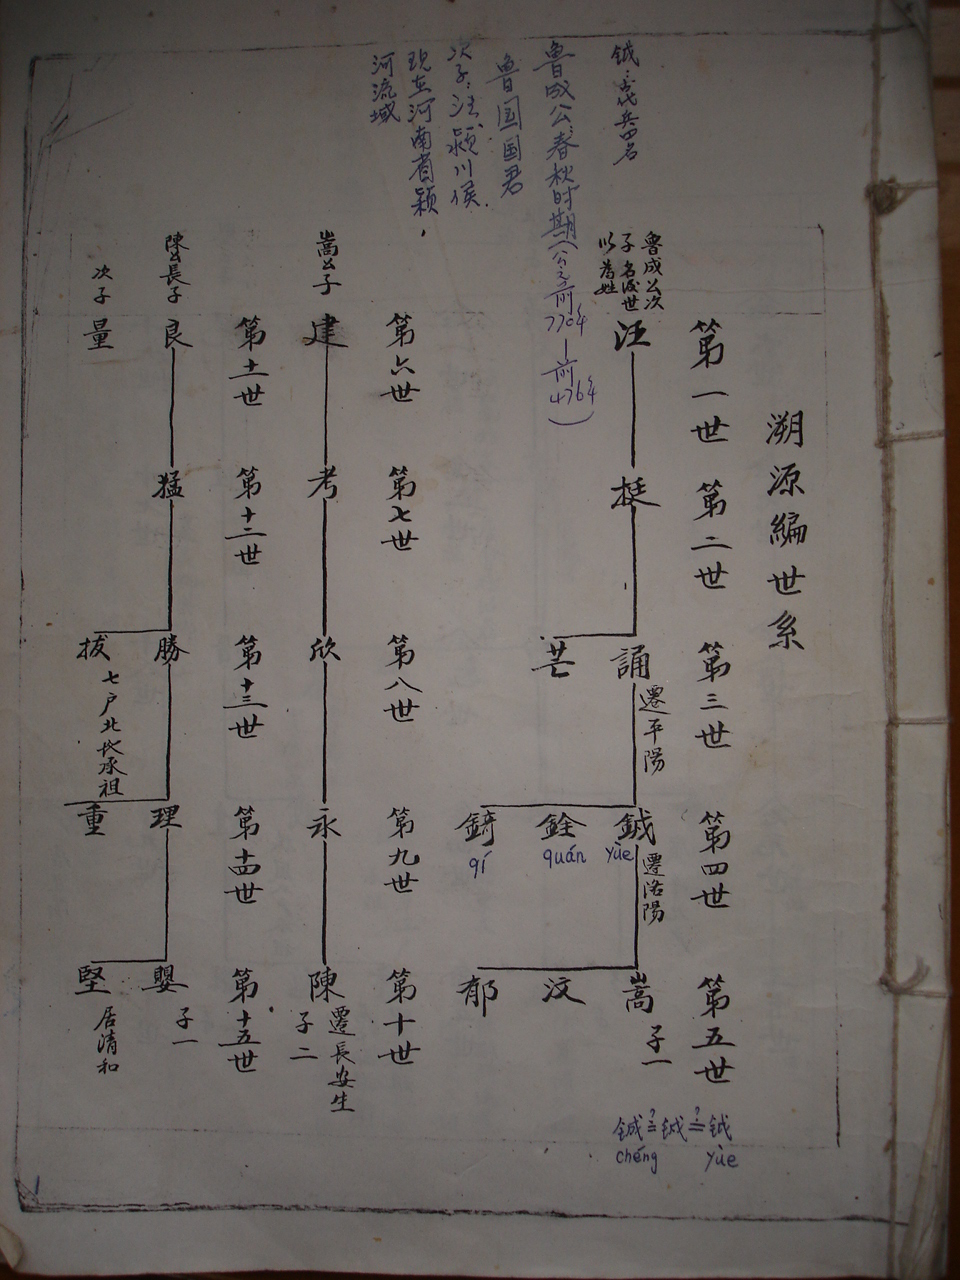 溯源編世系
第一世
第二世
第三世
第四世
第五世
魯成公次
子名後世
以為姓
汪
挺
誦
遷平陽
鉞
yuè
遷洛陽
嵩
子一
芒
銓
quán
汶
錡
qí
郁
第六世
第七世
第八世
第九世
第十世
嵩公子
建
考
欣
永
陳
遷長安生
子二
第十一世
第十二世
第十三世
第十四世
第十五世
陳公長子
良
猛
勝
理
嬰
子一
次子
量
拔
七户北
承祖
重
堅
居清和
鉞:古代兵器名
鲁成公春秋时期(公元前770年—前476年)
鲁国国君
次子:汪、颍川侯.
现在河南省颍
河流域
鋮?=鋮?=鉞
chéng
yuè
1